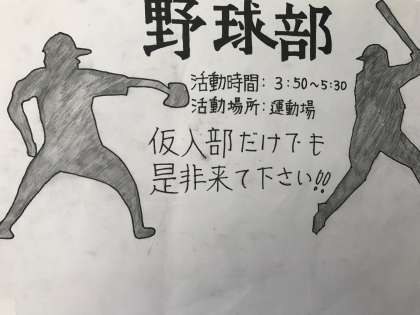 野球部
活動時間：3:50～5:30
活動場所：運動場
仮入部だけでも
是非来て下さい!!